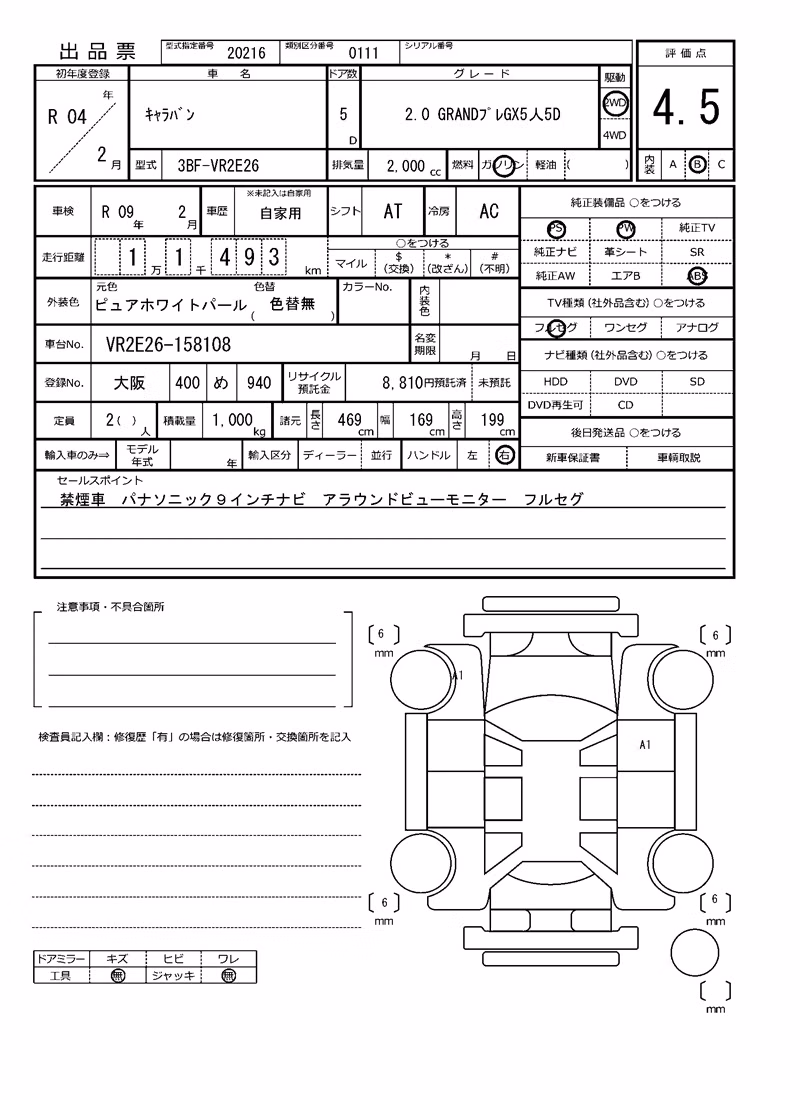 出品票 型式指定番号 20216 類別区分番号 0111 シリアル番号
評価点
初年度登録 車名 ドア数 グレード 駆動
R 04 年 2 月 ｷｬﾗﾊﾞﾝ 5 D 2.0 GRANDﾌﾟﾚGX5人5D 2WD 4WD
4.5
型式 3BF-VR2E26 排気量 2,000 cc 燃料 ガソリン 軽油 ( )
内装 A B C
車検 R 09 年 2 月 車歴 ※未記入は自家用 自家用 シフト AT 冷房 AC
走行距離 1 万 1 千 4 9 3 km ○をつける
マイル $ (交換) * (改ざん) # (不明)
外装色 元色 ピュアホワイトパール 色替 ( 色替無 ) カラーNo. 内装色
車台No. VR2E26-158108 名変期限 月 日
登録No. 大阪 400 め 940 リサイクル預託金 8,810円預託済 未預託
定員 2( ) 人 積載量 1,000 kg 諸元 長さ 469 cm 幅 169 cm 高さ 199 cm
輸入車のみ⇒ モデル年式 年 輸入区分 ディーラー 並行 ハンドル 左 右
純正装備品 ○をつける
PS PW 純正TV
純正ナビ 革シート SR
純正AW エアB ABS
TV種類(社外品含む)○をつける
フルセグ ワンセグ アナログ
ナビ種類(社外品含む)○をつける
HDD DVD SD
DVD再生可 CD
後日発送品 ○をつける
新車保証書 車輌取説
セールスポイント
禁煙車 パナソニック９インチナビ アラウンドビューモニター フルセグ
注意事項・不具合箇所
検査員記入欄：修復歴「有」の場合は修復箇所・交換箇所を記入
ドアミラー キズ ヒビ ワレ
工具 無 ジャッキ 無
[ 6 ] mm
[ 6 ] mm
A1
A1
[ 6 ] mm
[ 6 ] mm
[ ] mm